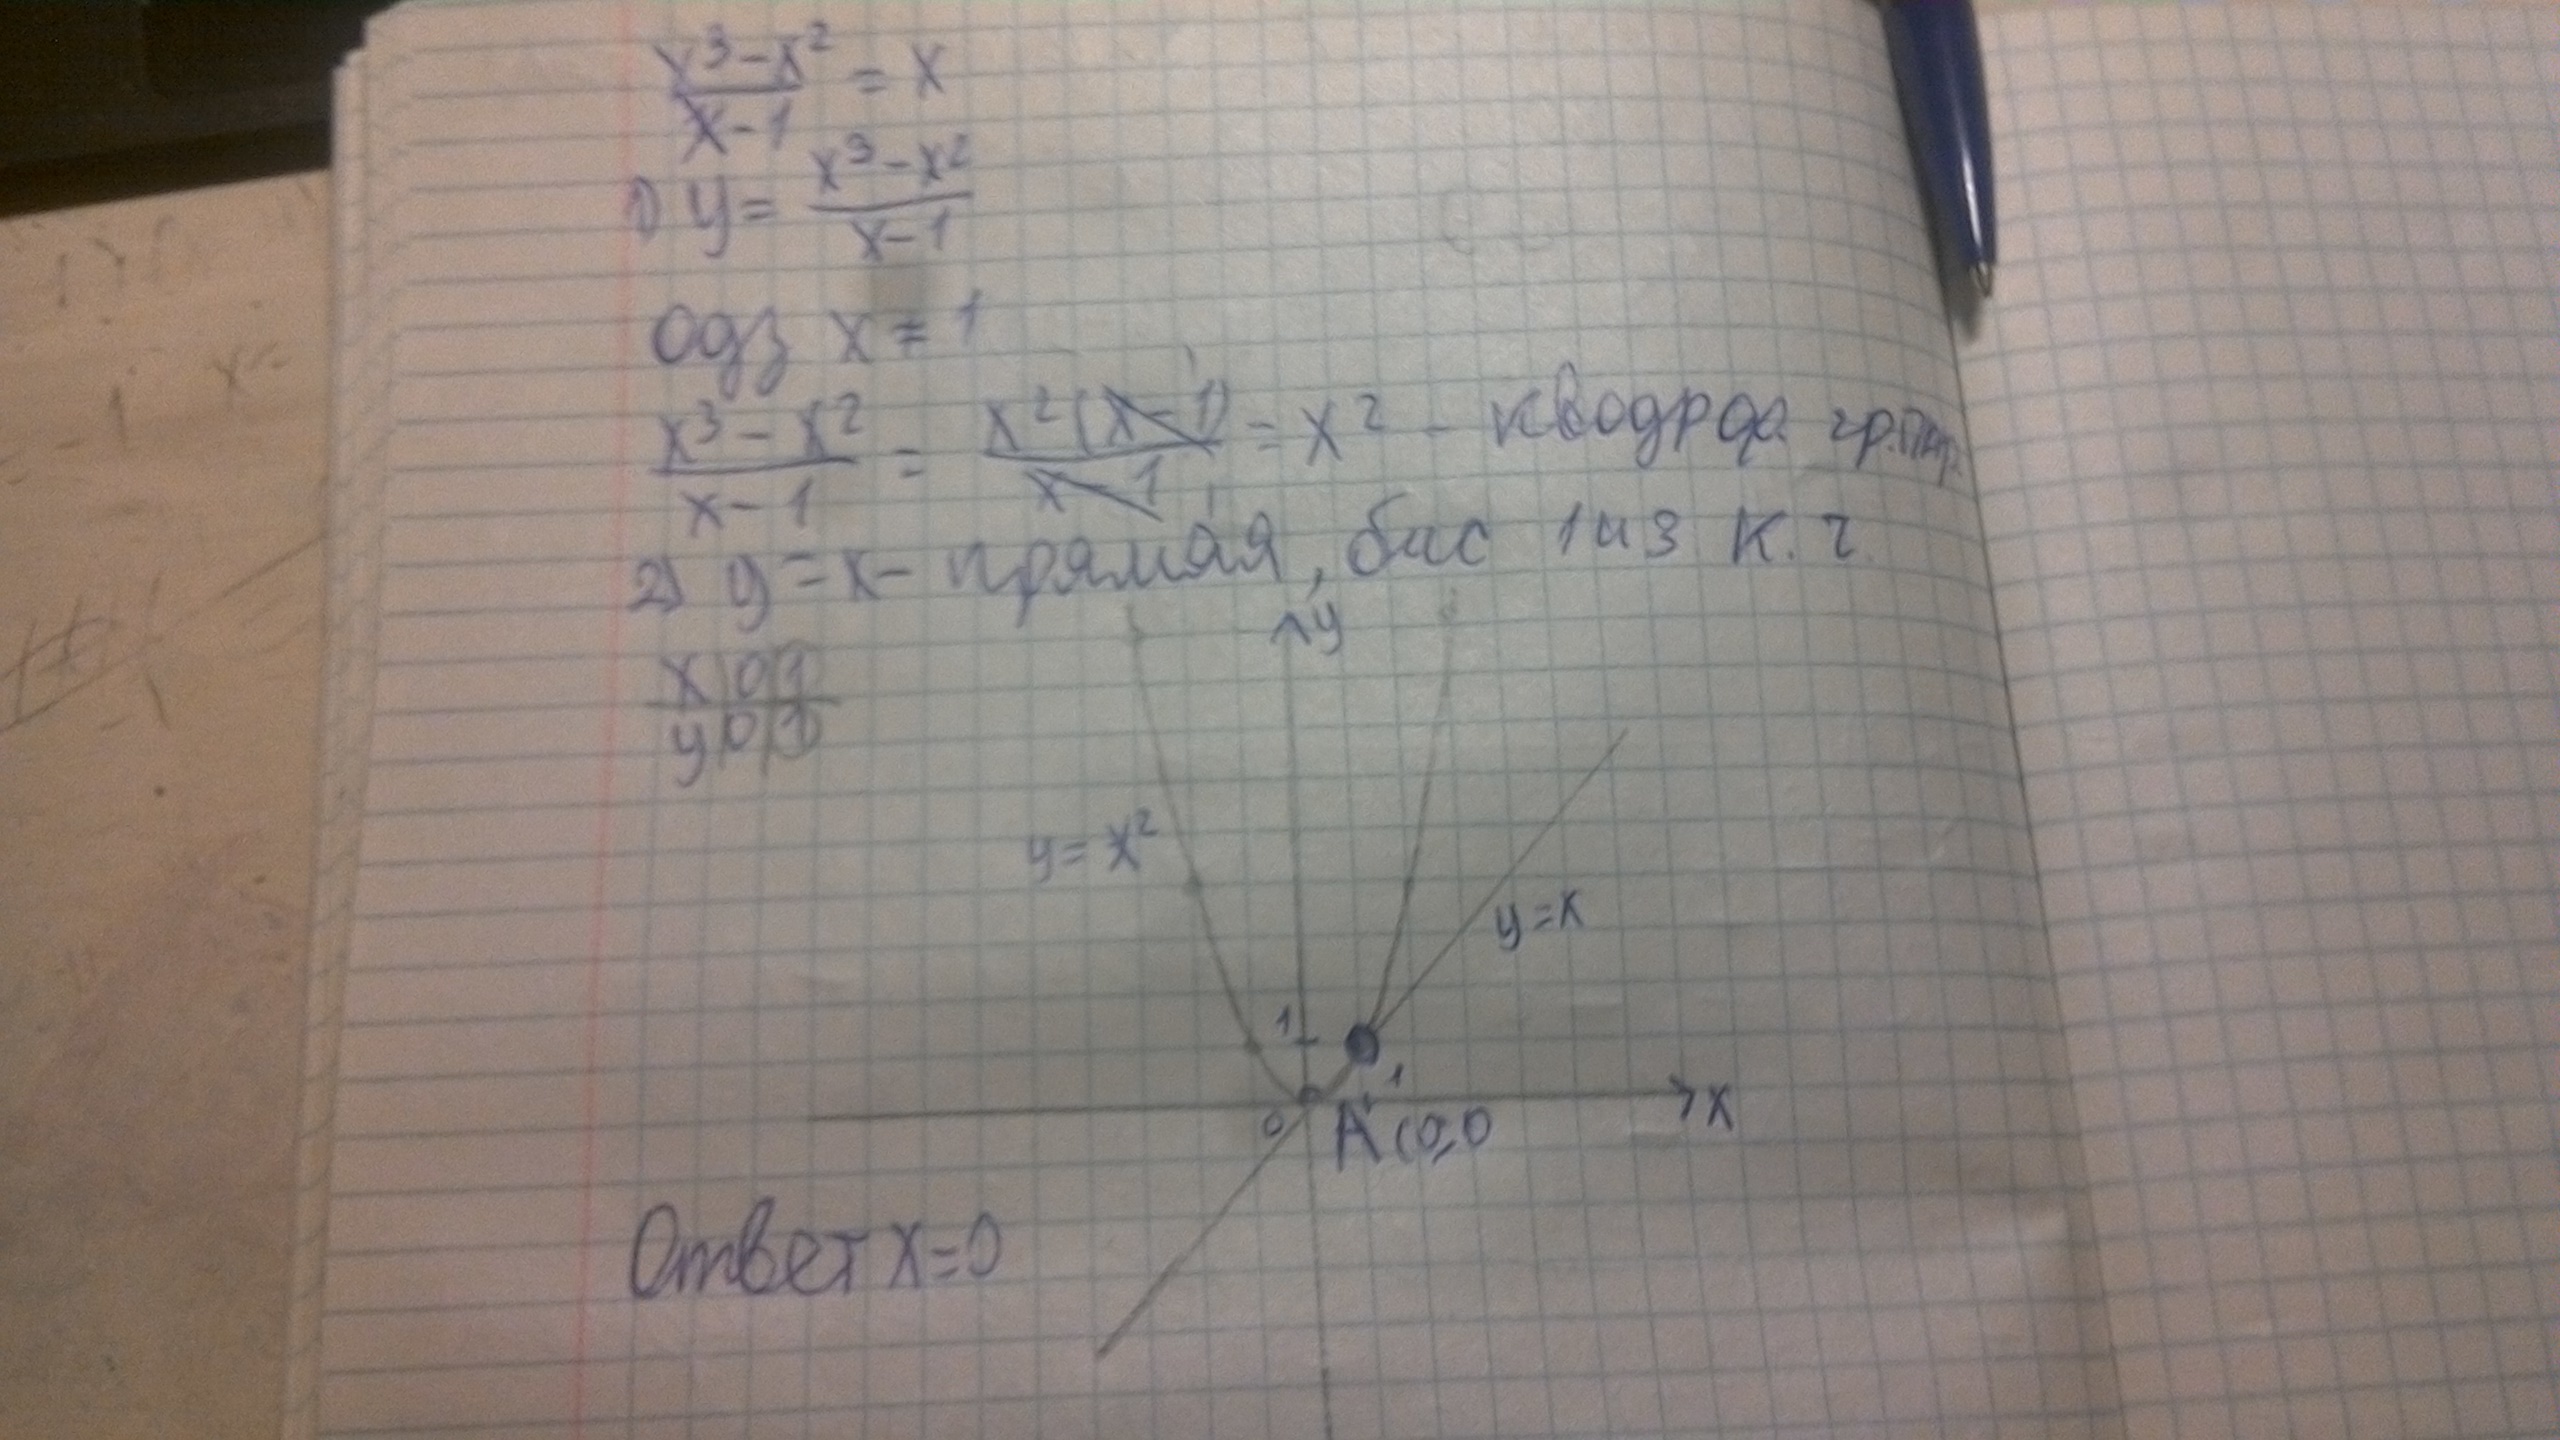 x³-x²/x-1 = x
1) y = x³-x²/x-1
одз x ≠ 1
x³-x²/x-1 = x²(x-1)/x-1 = x² - квадр ф. гр. пар.
2) y = x - прямая, бис 1 и 3 к. ч.
x | 0 | 1
y | 0 | 1
y
y = x²
y = x
1
1
0
A (0,0
x
Ответ x=0